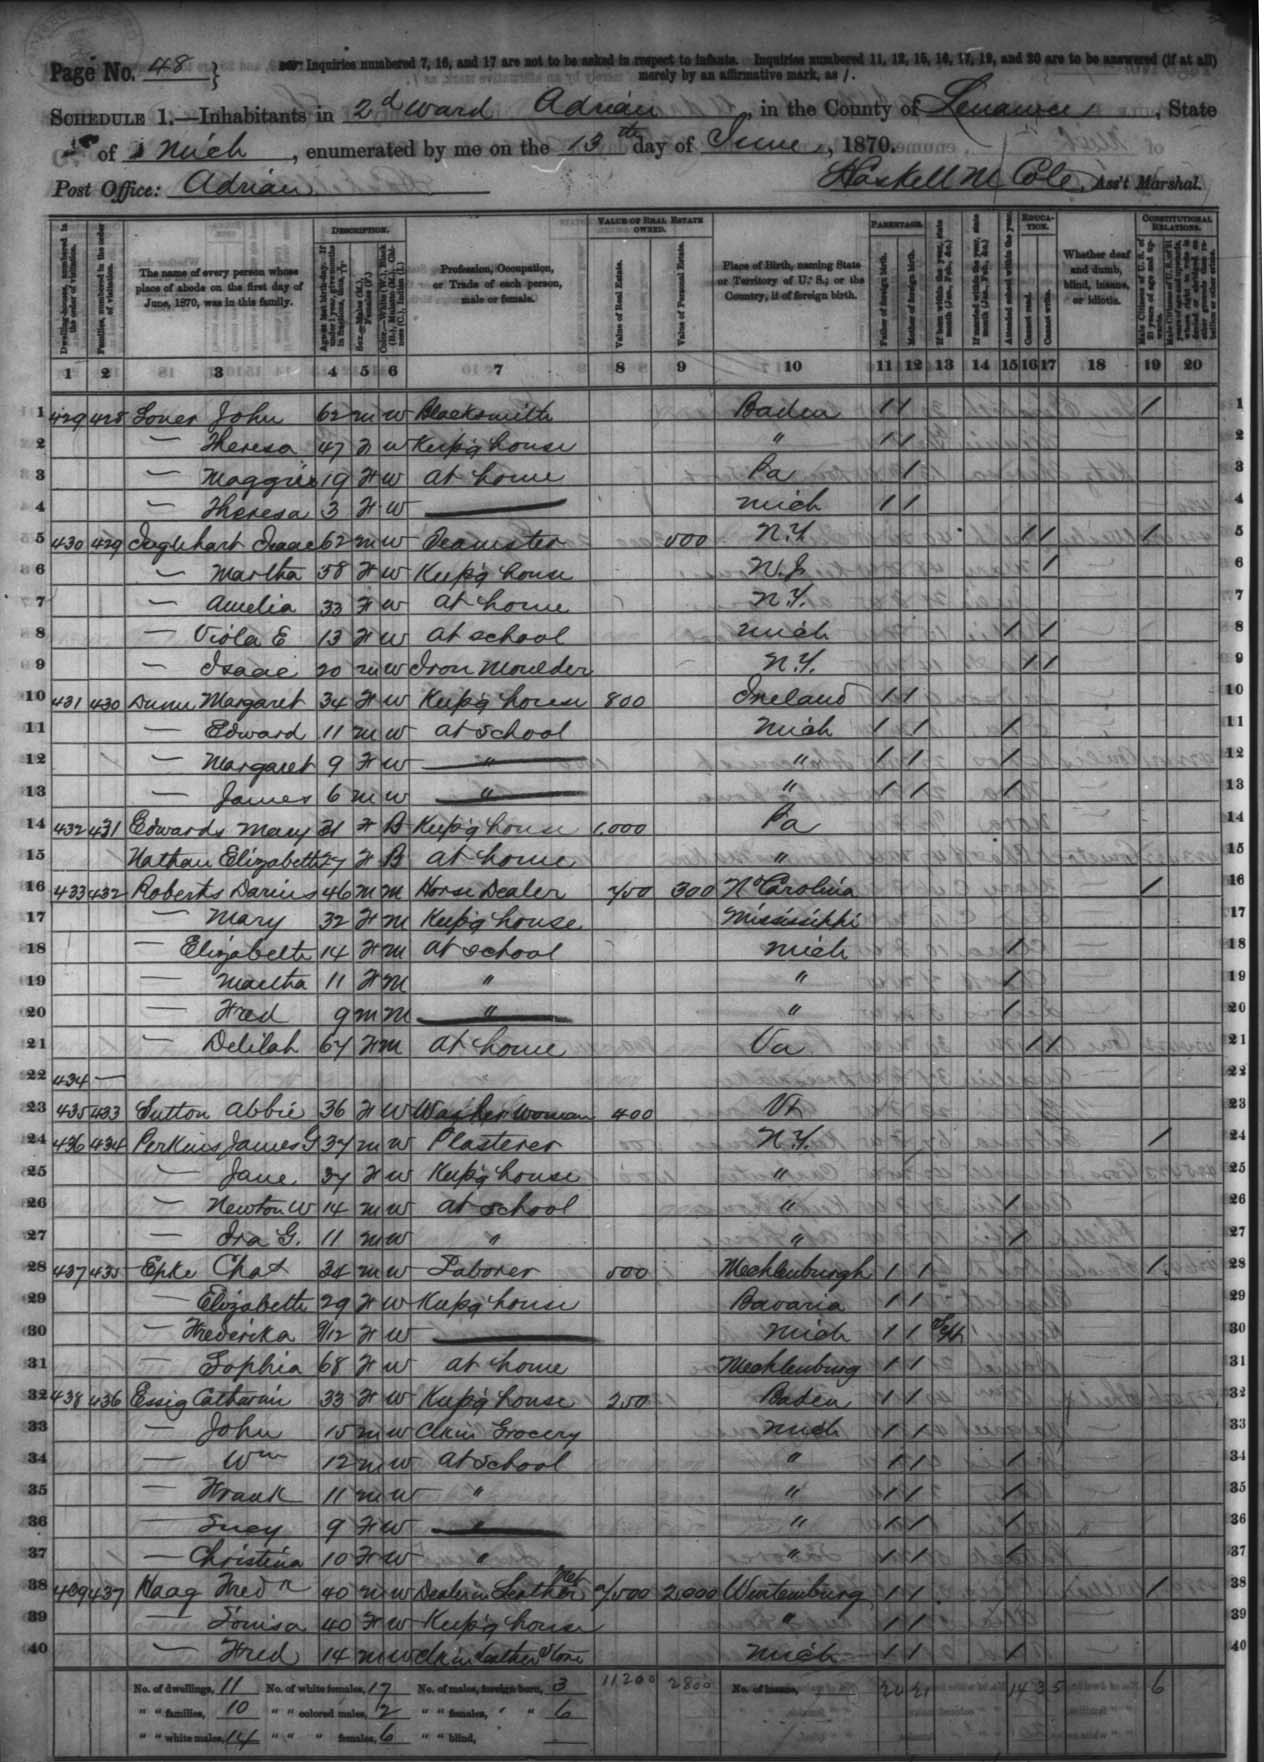 Page No. 48 } Inquiries numbered 7, 16, and 17 are not to be asked in respect to infants. Inquiries numbered 11, 12, 15, 16, 17, 19, and 20 are to be answered (if at all)
merely by an affirmative mark, as /.
SCHEDULE 1.—Inhabitants in 2d Ward Adrian, in the County of Lenawee, State
of Mich, enumerated by me on the 13th day of June, 1870.
Post Office: Adrian Haskell M Cole, Ass't Marshal.
DESCRIPTION. VALUE OF REAL ESTATE OWNED. PARENTAGE. EDUCATION. CONSTITUTIONAL RELATIONS.
Dwelling-houses, numbered in the order of visitation.
Families, numbered in the order of visitation.
The name of every person whose place of abode on the first day of June, 1870, was in this family.
Age at last birth-day. If under 1 year, give months in fractions, thus, 3/12
Sex.—Males (M.), Females (F.)
Color.—White (W.), Black (B.), Mulatto (M.), Chinese (C.), Indian (I.)
Profession, Occupation, or Trade of each person, male or female.
Value of Real Estate.
Value of Personal Estate.
Place of Birth, naming State or Territory of U. S.; or the Country, if of foreign birth.
Father of foreign birth.
Mother of foreign birth.
If born within the year, state month (Jan., Feb., &c.)
If married within the year, state month (Jan., Feb., &c.)
Attended school within the year.
Cannot read.
Cannot write.
Whether deaf and dumb, blind, insane, or idiotic.
Male Citizens of U. S. of 21 years of age and upwards.
1 2 3 4 5 6 7 8 9 10 11 12 13 14 15 16 17 18 19 20
1 429 428 John 62 M W Blacksmith Baden / / / 1
2 — Theresa 47 F W Keep'g house " / / 2
3 — Maggie 19 F W at home Pa / 3
4 — Theresa 3 F W Mich / / 4
5 430 429 Inglehart Isaac 62 M W Teamster 500 N.Y. / / / 5
6 — Martha 58 F W Keep'g house N.J. / 6
7 — Amelia 33 F W at home N.Y. 7
8 — Viola E 13 F W at school Mich / / 8
9 — Isaac 20 M W Iron Moulder N.Y. / / 9
10 431 430 Dunn Margaret 34 F W Keep'g house 800 Ireland / / 10
11 — Edward 11 M W at school Mich / / / 11
12 — Margaret 9 F W " " / / / 12
13 — James 6 M W " " / / / 13
14 432 431 Edwards Mary 31 F B Keep'g house 1,000 Pa 14
15 Nathan Elizabeth 27 F B at home " 15
16 433 432 Roberts Darius 46 M M Horse Dealer 300 N Carolina / 16
17 — Mary 32 F M Keep'g house Mississippi 17
18 — Elizabeth 14 F M at school Mich / 18
19 — Martha 11 F M " " / 19
20 — Fred 9 M M " " / 20
21 — Delilah 67 F M at home Va / / 21
22 434 — 22
23 435 433 Sutton Abbie 36 F W Washer Woman 400 Vt 23
24 436 434 Perkins James G 37 M W Plasterer N.Y. / 24
25 — Jane 37 F W Keep'g house " 25
26 — Newton W 14 M W at school " / 26
27 — Ira G. 11 M W " " / 27
28 437 435 Epke Chas 34 M W Laborer 500 Mecklenburgh / / / 28
29 — Elizabeth 29 F W Keep'g house Bavaria / / 29
30 — Frederika 9/12 F W Mich / / Sept 30
31 — Sophia 68 F W at home Mecklenburg / / 31
32 438 436 Essig Catharin 33 F W Keep'g house 250 Baden / / 32
33 — John 15 M W Clk in Grocery Mich / / 33
34 — Wm 12 M W at school " / / / 34
35 — Frank 11 M W " " / / / 35
36 — Lucy 9 F W " " / / / 36
37 — Christina 10 F W " " / / / 37
38 439 437 Haag Fred'k 40 M W Dealer in Leather 2,000 Wurtemburg / / / 38
39 — Louisa 40 F W Keep'g house " / / 39
40 — Fred 14 M W Clk in Leather Store Mich / / / 40
No. of dwellings, 11 No. of white females, 17 No. of males, foreign born, 3 11200 2800 No. of insane, 20 21 14 3 5 6
" " families, 10 " " colored males, 2 " " females, " " 6
" " white males, 14 " " " females, 6 " " blind,